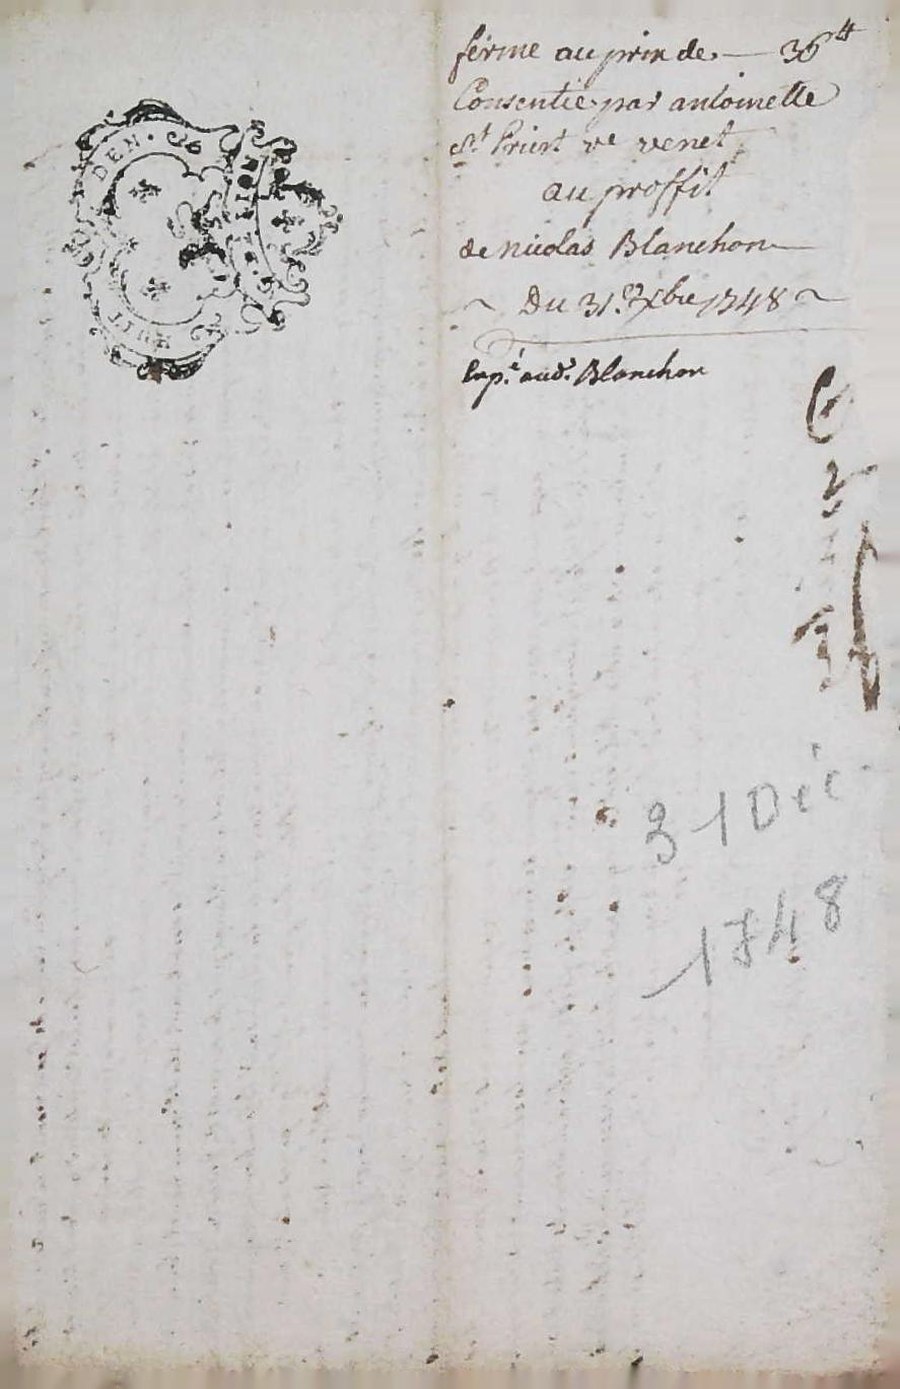 HUIT DEN.
LION
ferme au prix de — 36ᵗᵗ
Consentie par antoinette
Sᵗ Priest vᵉ venet
au proffit
de nicolas Blanchon
Du 31.ᵉ Xbre 1748
Exp.ᵉ aud.ᵗ Blanchon
31 Déc
1748